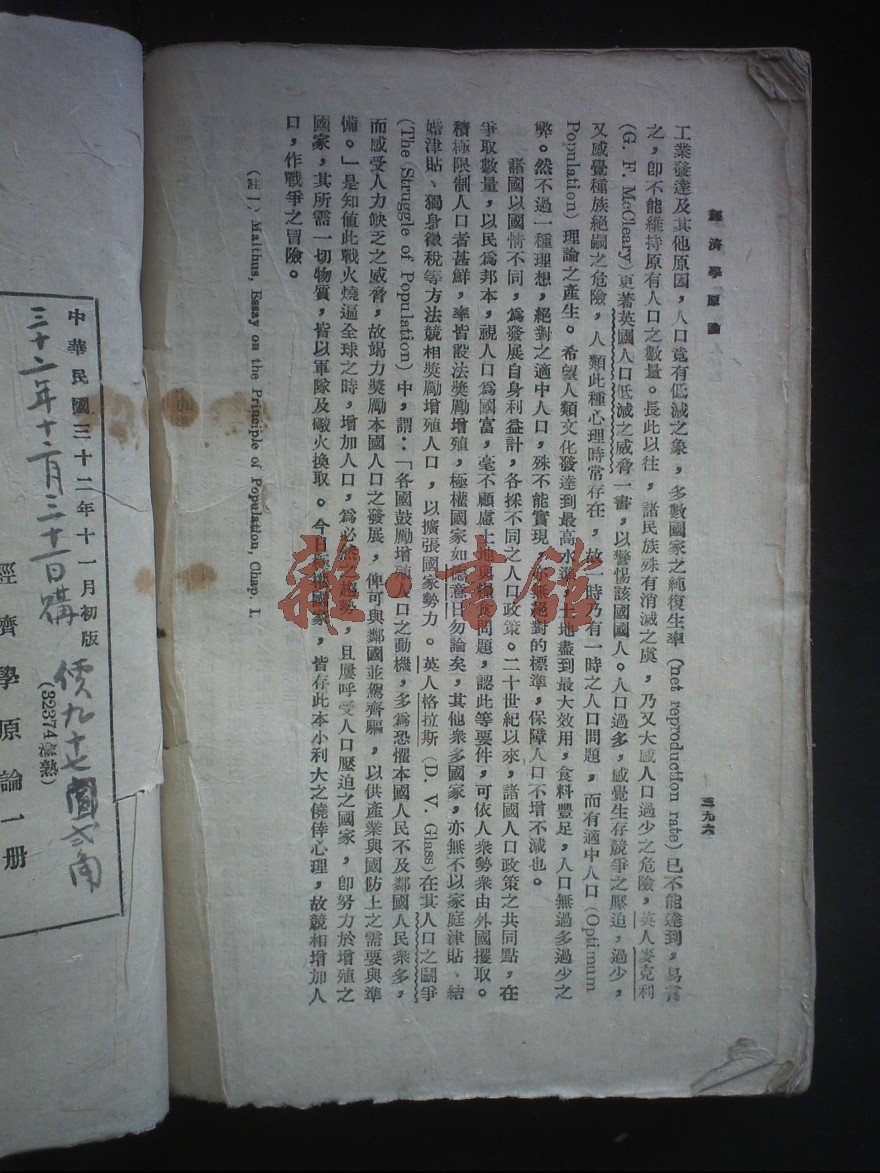 經濟學原論
三九六
工業發達及其他原因，人口竟有低減之象，多數國家之純復生率 (net reproduction rate) 已不能達到，易言
之，卽不能維持原有人口之數量。長此以往，諸民族殊有消滅之虞，乃又大感人口過少之危險，英人麥克利
(G. F. McCleary) 更著英國人口低減之威脅一書，以警惕該國國人。人口過多，感覺生存競爭之壓迫，過少，
又感覺種族絕嗣之危險，人類此種心理時常存在，故一時乃有一時之人口問題，而有適中人口 (Optimum
Population) 理論之產生。希望人類文化發達到最高水準，土地盡到最大效用，食料豐足，人口無過多過少之
弊。然不過一種理想，絕對之適中人口，殊不能實現，亦無絕對的標準，保障人口不增不減也。
諸國以國情不同，爲發展自身利益計，各採不同之人口政策。二十世紀以來，諸國人口政策之共同點，在
爭取數量，以民爲邦本，視人口爲國富，毫不顧慮土地與糧食問題，認此等要件，可依人衆勢衆由外國攫取。
積極限制人口者甚鮮，率皆設法獎勵增殖，極權國家如德意日勿論矣，其他衆多國家，亦無不以家庭津貼、結
婚津貼、獨身徵稅等方法競相獎勵增殖人口，以擴張國家勢力。英人格拉斯 (D. V. Glass) 在其人口之鬭爭
(The Struggle of Population) 中，謂：「各國鼓勵增殖人口之動機，多爲恐懼本國人民不及鄰國人民衆多，
而感受人力缺乏之威脅，故竭力獎勵本國人口之發展，俾可與鄰國並駕齊驅，以供產業與國防上之需要與準
備。」是知值此戰火燒遍全球之時，增加人口，爲必然之趨勢，且屢呼受人口壓迫之國家，卽努力於增殖之
國家，其所需一切物質，皆以軍隊及礮火換取。今日極權國家，皆存此本小利大之僥倖心理，故競相增加人
口，作戰爭之冒險。
(註一) Malthus, Essay on the Principle of Population, Chap. I.
中華民國三十二年十一月初版
三十二年十二月三十一日購 價九十七圓弍角
(32374 渝熟)
經濟學原論一册
雜·書館